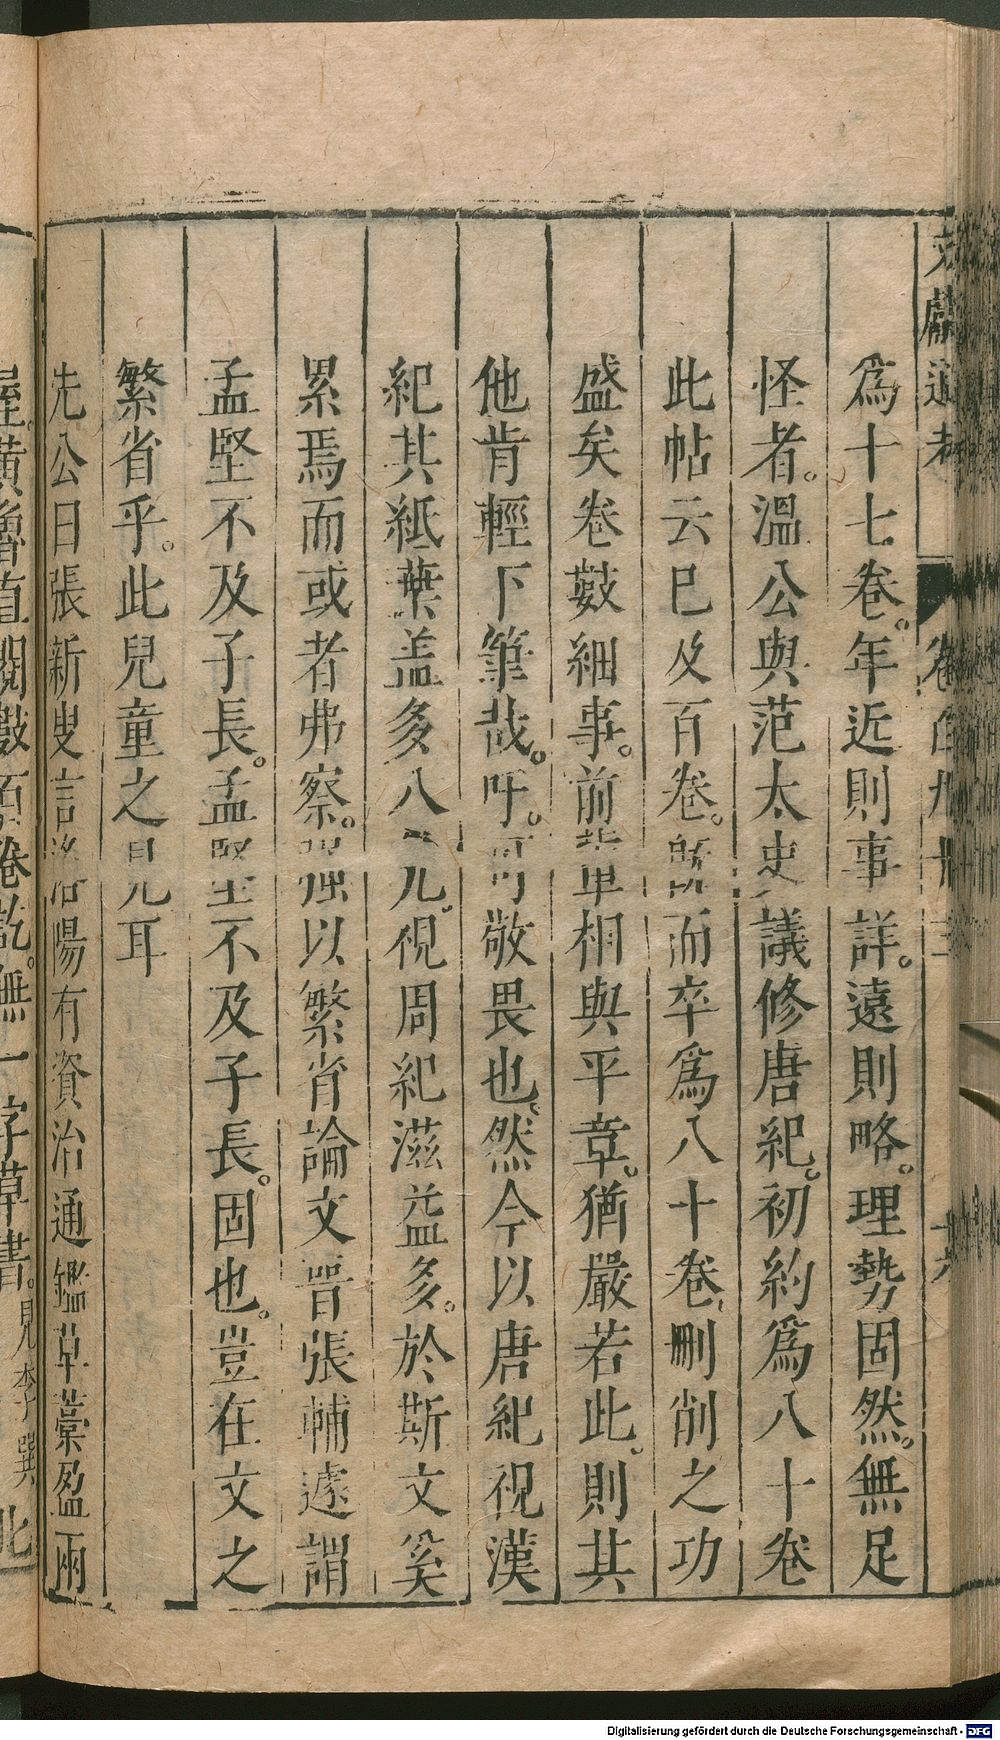 文獻通考 卷百九十三
爲十七卷。年近則事詳。遠則略。理勢固然。無足
怪者。溫公與范太史議修唐紀。初約爲八十卷
此帖云已及百卷。既而卒爲八十卷。刪削之功
盛矣卷數細事。前輩相與平章。猶嚴若此。則其
他肯輕下筆哉。吁。可敬畏也。然今以唐紀視漢
紀其紙葉盖多八九。視周紀滋益多。於斯文奚
累焉而或者弗察。强以繁省論文晉張輔遂謂
孟堅不及子長。孟堅不及子長。固也。豈在文之
繁省乎。此兒童之見耳
先公曰張新叟言洛陽有資治通鑑草藁盈兩
屋。黃魯直閱數百卷訖。無一字草書。見李巽
Digitalisierung gefördert durch die Deutsche Forschungsgemeinschaft - DFG